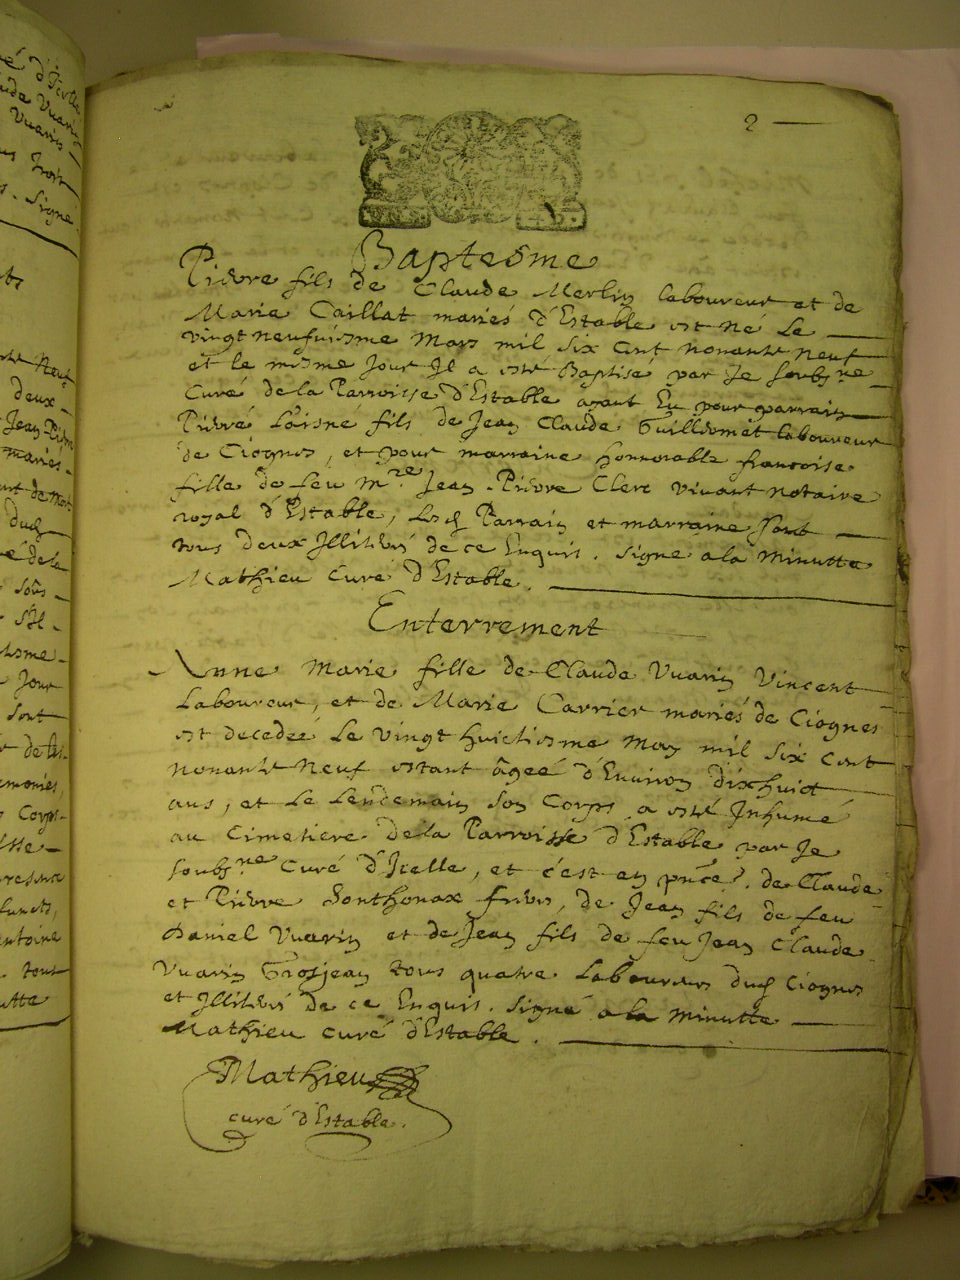 2
Baptesme
Pierre fils de Claude Merlin laboureur et de
Marie Caillat mariés d'Estable est né Le
vingt neufuiesme Mars mil six cent nonante neuf
et le mesme Jour Il a esté Baptisé par Je soubsne
Curé de la Parroisse d'Estable ayant Eu pour parrain
Pierre Laisné fils de Jean Claude Guillermet laboureur
de Ciognes, et pour marraine honnorable francoise
fille de feu Mre Jean-Pierre Clerc vivant notaire
royal d'Estable, Lesd Parrain et marraine sont
tous deux Illiterés de ce Enquis. signé a la Minutte
Mathieu Curé d'Estable.
Enterrement
Anne Marie fille de Claude Vuarin Vincent
Laboureur, et de Marie Carrier mariés de Ciognes
est decedeé Le vingt huictiesme May mil six Cent
nonante Neuf estant âgeé d'Environ dixhuict
ans, et Le Lendemain son Corps a esté Inhumé
au Cimetiere de la Parroisse d'Estable par Je
soubsne Curé d'Icelle, et c'est en pnce de Claude
et Pierre Sonthonax freres, de Jean fils de feu
Daniel Vuarin et de Jean fils de feu Jean Claude
Vuarin Grosjean tous quatre Laboureurs dud Ciognes
et Illiterés de ce Enquis. Signé a la Minutte
Mathieu curé d'Estable.
Mathieu
curé d'Estable.